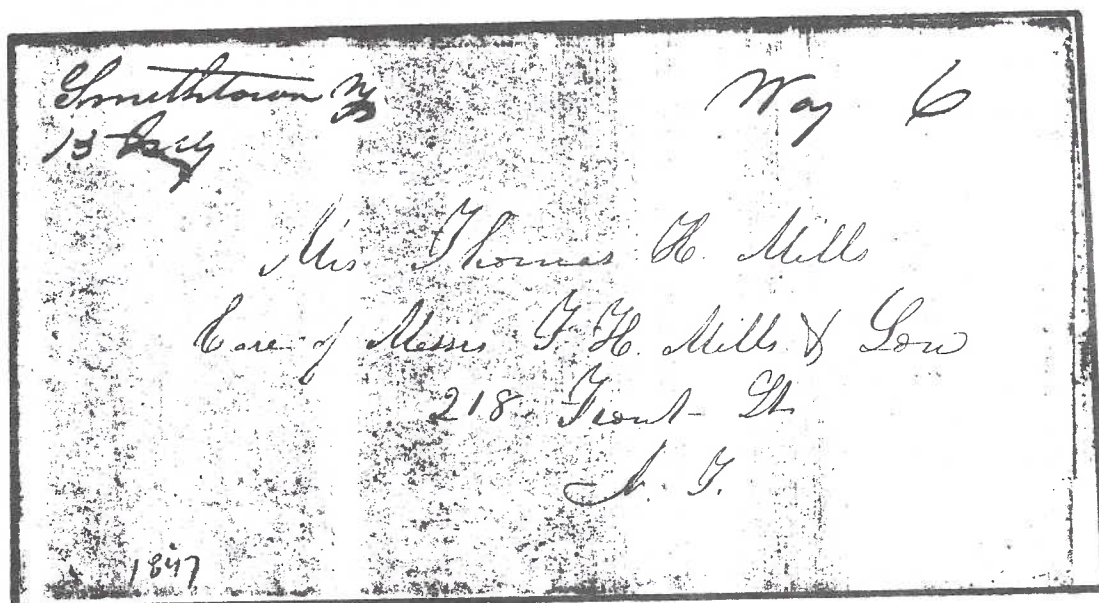 Smithtown NY
13
Way 6
Mrs Thomas H. Mills
Care of Messrs T. H. Mills & Son
218 Front St
N. Y.
1847